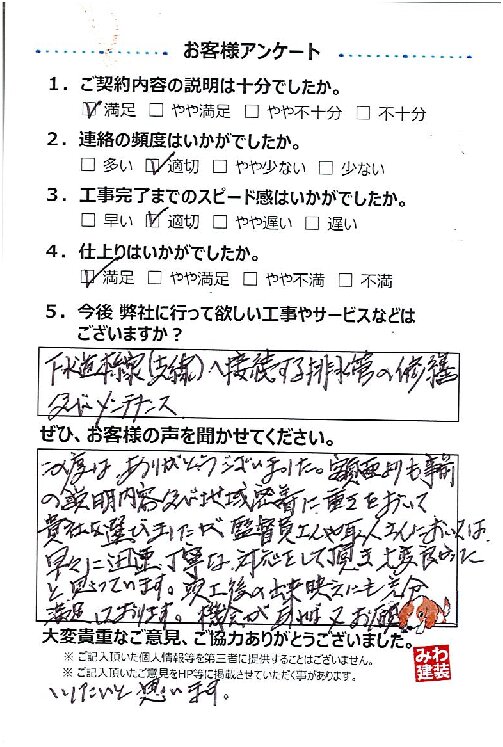 お客様アンケート
1．ご契約内容の説明は十分でしたか。
☑ 満足 □ やや満足 □ やや不十分 □ 不十分
2．連絡の頻度はいかがでしたか。
□ 多い ☑ 適切 □ やや少ない □ 少ない
3．工事完了までのスピード感はいかがでしたか。
□ 早い ☑ 適切 □ やや遅い □ 遅い
4．仕上りはいかがでしたか。
☑ 満足 □ やや満足 □ やや不満 □ 不満
5．今後 弊社に行って欲しい工事やサービスなどは
ございますか？
下水道本線(支線)へ接続する排水管の修繕
及びメンテナンス
ぜひ、お客様の声を聞かせてください。
この度は ありがとうございました。金額面よりも事前
の説明内容及び地域密着に重きをおいて
貴社を選びましたが 監督員さんや職人さんにおいては
早々に迅速丁寧な対応をして頂き大変良かった
と思っています。完工後の出来映えにも充分
満足しております。機会があれば又お願
大変貴重なご意見、ご協力ありがとうございました。
※ ご記入頂いた個人情報等を第三者に提供することはございません。
※ ご記入頂いたご意見をHP等に掲載させていただく事があります。
みわ
建装
いしたいと思います。